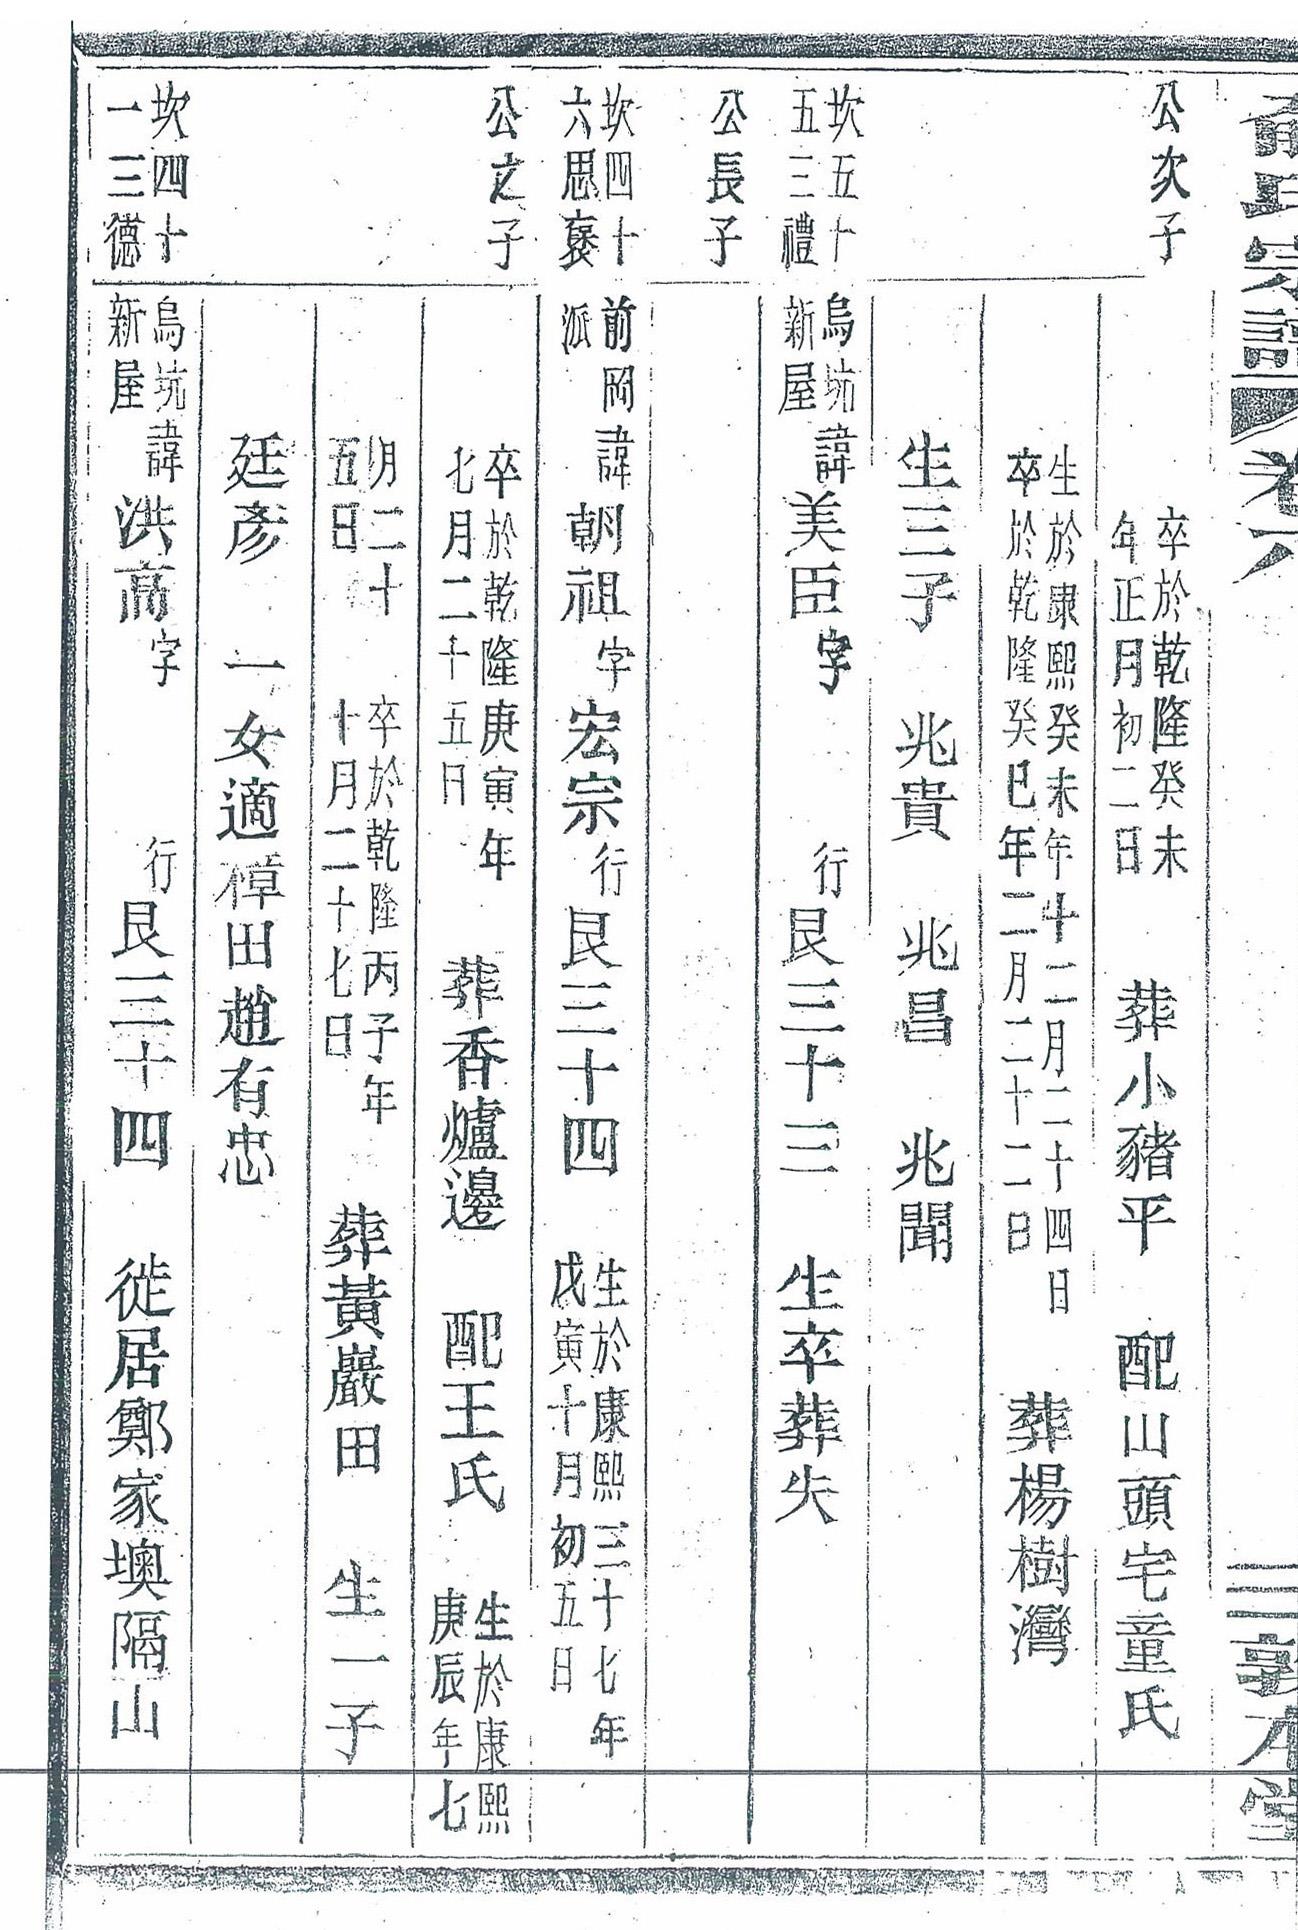 氏宗譜 卷六 三 敦本堂
公次子
卒於乾隆癸未
年正月初二日 葬小豬平 配山頭宅童氏
生於康熙癸未年十二月二十四日
卒於乾隆癸巳年二月二十二日 葬楊樹灣
生三子 兆貴 兆昌 兆聞
坎五十
五三禮
公長子
烏坑
新屋 諱美臣字 行艮三十三 生卒葬失
坎四十
六思褒
公之子
前岡
派 諱朝祖字宏宗行艮三十四 生於康熙三十七年
戊寅十月初五日
卒於乾隆庚寅年
七月二十五日 葬香爐邊 配王氏 生於康熙
庚辰年七
月二十
五日 卒於乾隆丙子年
十月二十七日 葬黃巖田 生一子
廷彥 一女適樟田趙有忠
坎四十
一三德
烏坑
新屋 諱洪高字 行艮三十四 徙居鄭家墺隔山